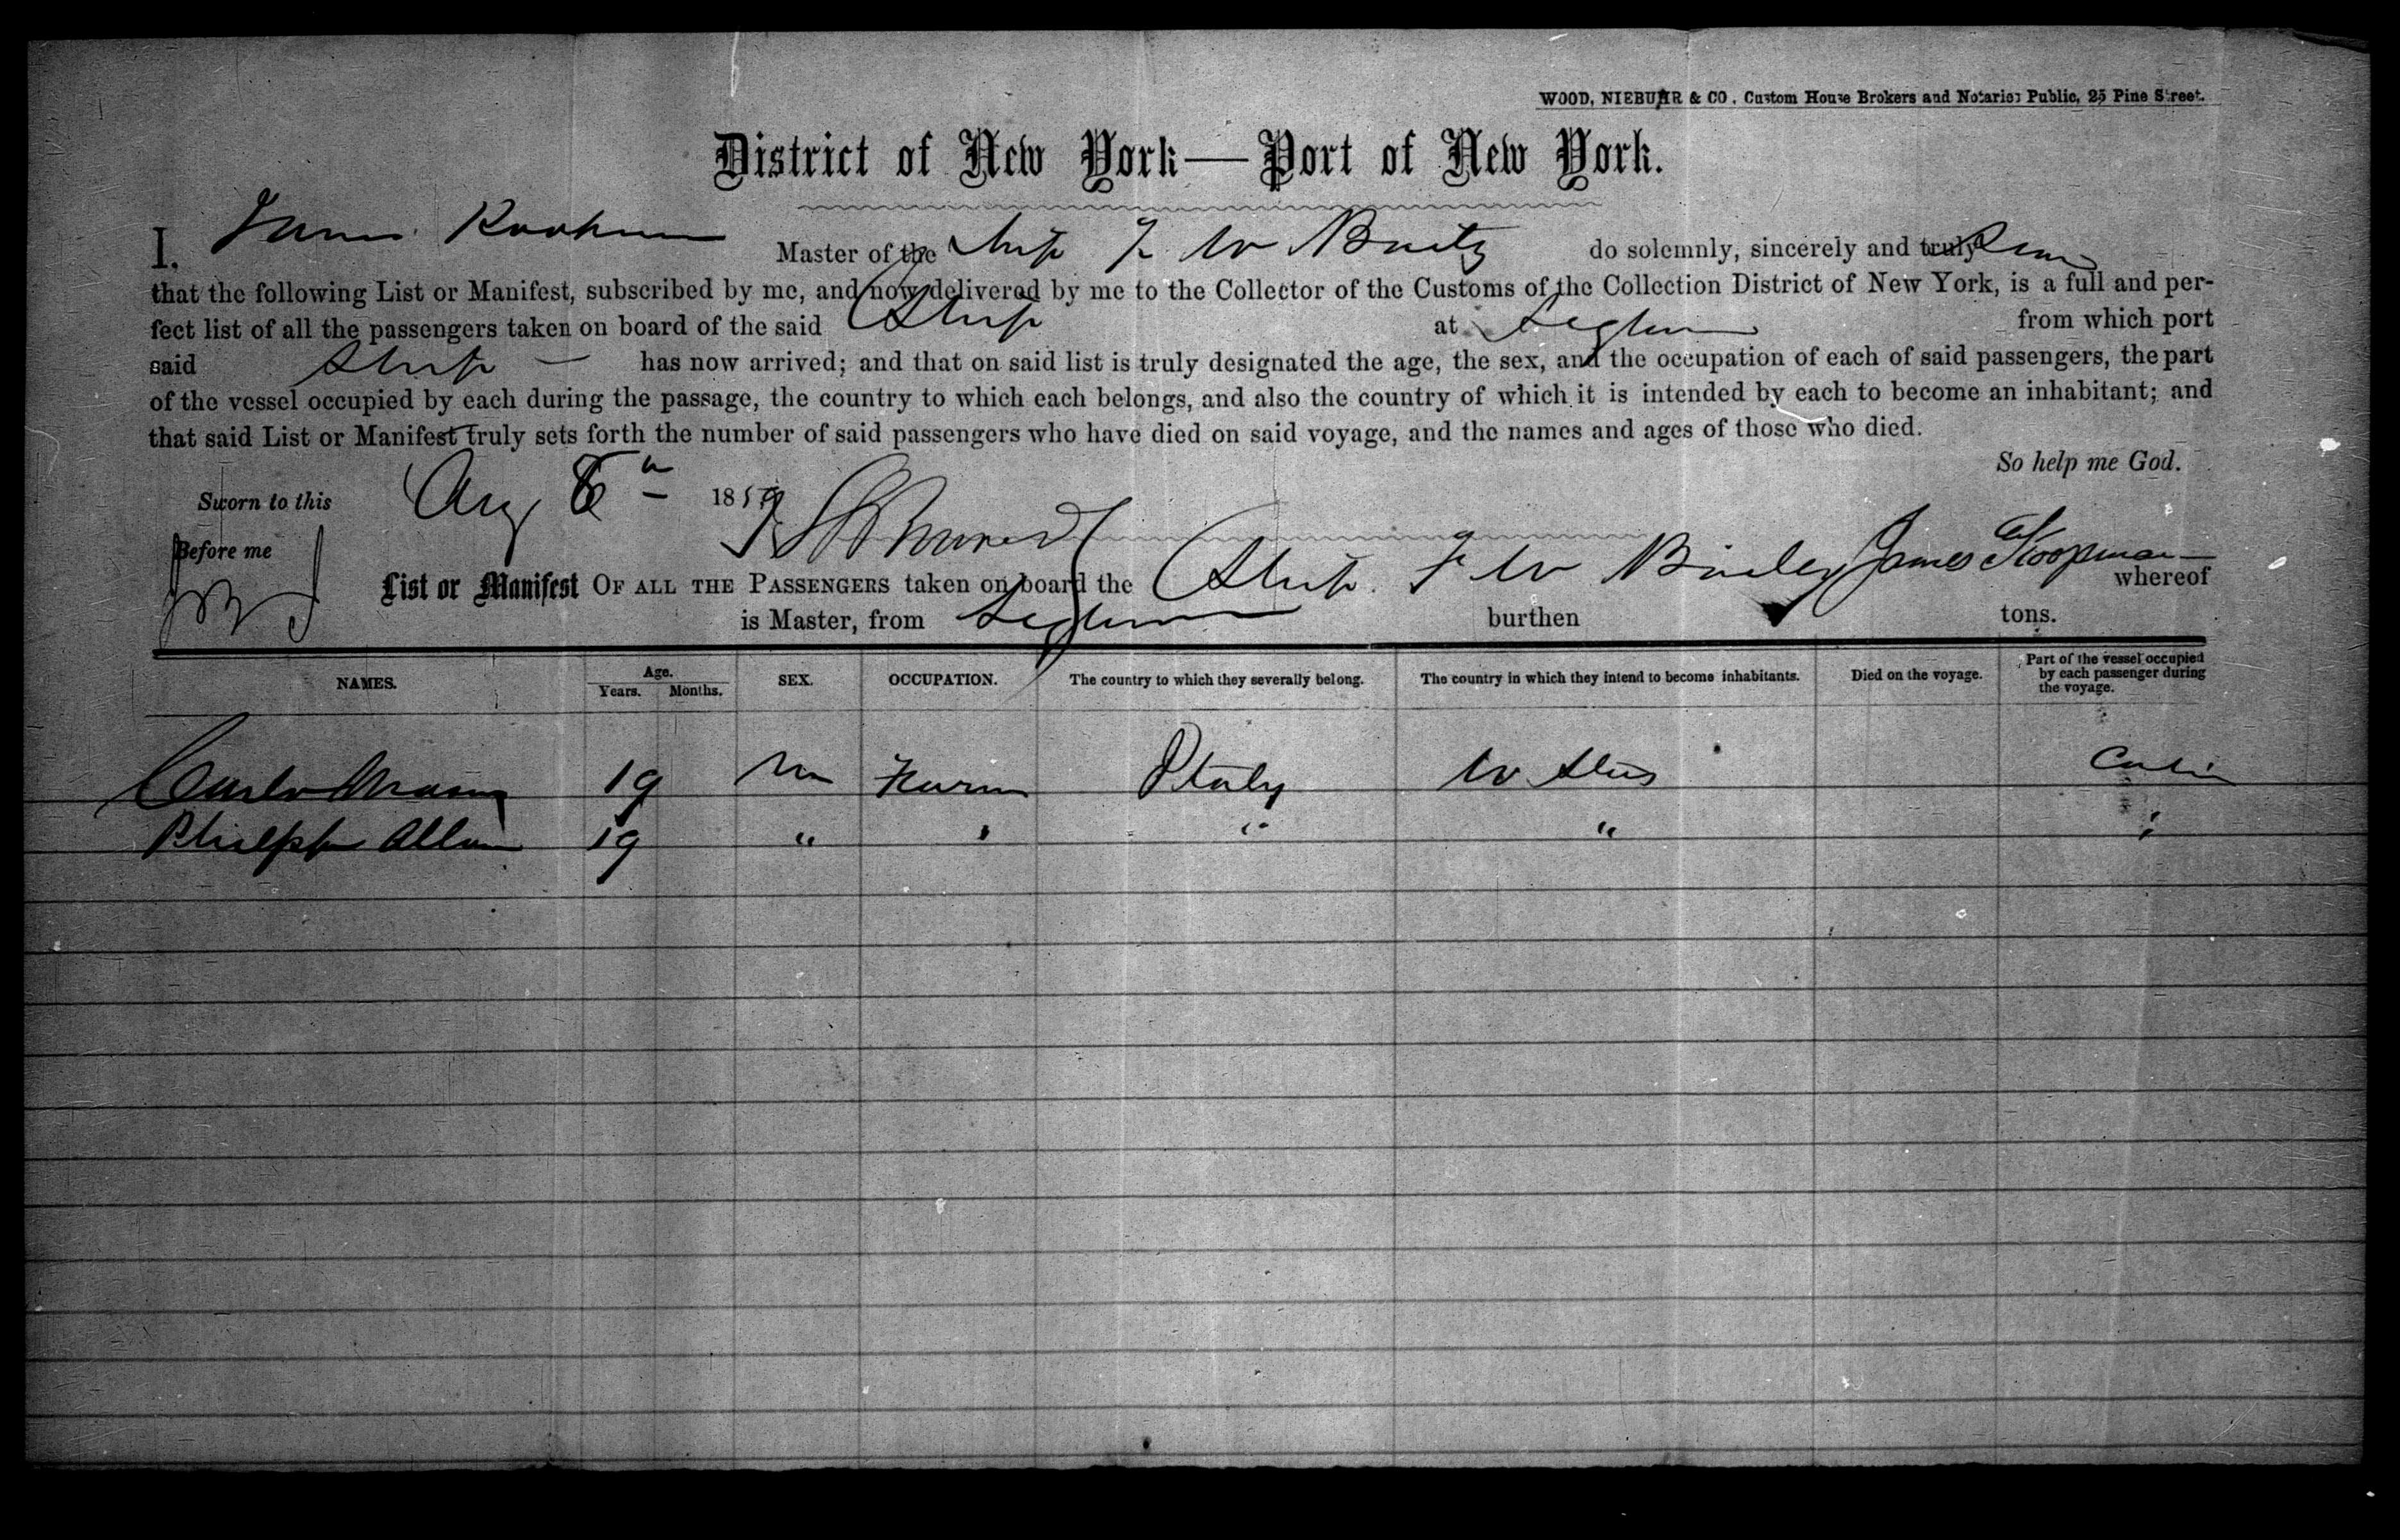 WOOD, NIEBUHR & CO. Custom House Brokers and Notaries Public, 25 Pine Street.
District of New York—Port of New York.
I, James Master of the Ship F W do solemnly, sincerely and truly
that the following List or Manifest, subscribed by me, and now delivered by me to the Collector of the Customs of the Collection District of New York, is a full and per-
fect list of all the passengers taken on board of the said Ship at Leghorn from which port
said Ship — has now arrived; and that on said list is truly designated the age, the sex, and the occupation of each of said passengers, the part
of the vessel occupied by each during the passage, the country to which each belongs, and also the country of which it is intended by each to become an inhabitant; and
that said List or Manifest truly sets forth the number of said passengers who have died on said voyage, and the names and ages of those who died.
So help me God.
Sworn to this Aug 1859
Before me James Koopman
List or Manifest OF ALL THE PASSENGERS taken on board the Ship F W whereof
is Master, from Leghorn burthen tons.
NAMES. Age. Years. Months. SEX. OCCUPATION. The country to which they severally belong. The country in which they intend to become inhabitants. Died on the voyage. Part of the vessel occupied by each passenger during the voyage.
Carlo 19 m Farm Italy U Stes Cabin
19 " " " " "